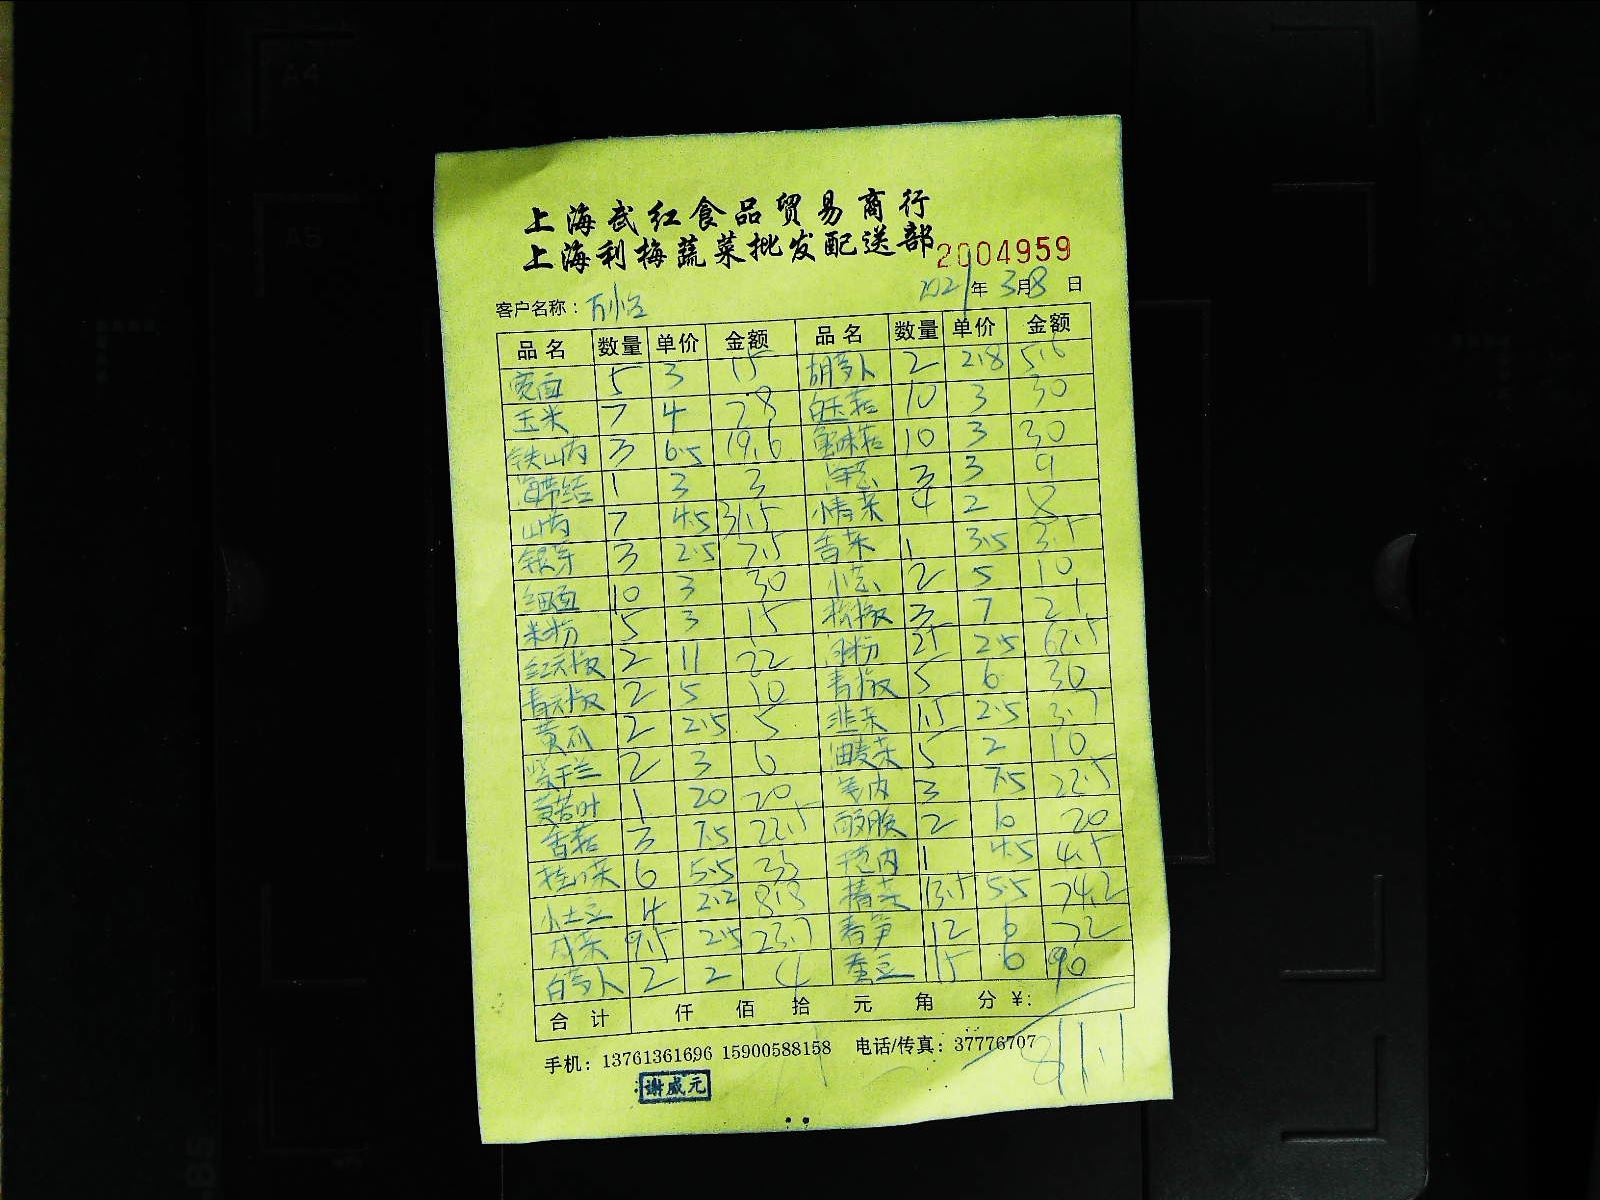 上海武红食品贸易商行
上海利梅蔬菜批发配送部
2004959
2021年3月8日
客户名称：
品名 数量 单价 金额 品名 数量 单价 金额
宽面 5 3 15 胡萝卜 2 2.8 5.6
玉米 7 4 28 白玉菇 10 3 30
铁山药 3 6.5 19.6 蟹味菇 10 3 30
海带结 1 3 3 洋葱 3 3 9
山药 7 4.5 31.5 小青菜 4 2 8
银芽 3 2.5 7.5 香菜 1 3.5 3.5
细面 10 3 30 小葱 2 5 10
米粉 5 3 15 杭椒 3 7 21
红尖椒 2 11 22 河粉 25 2.5 62.5
青尖椒 2 5 10 青椒 5 6 30
黄瓜 2 2.5 5 韭菜 1.5 2.5 3.7
紫干兰 2 3 6 油麦菜 5 2 10
1 20 20 姜肉 3 7.5 22.5
香菇 3 7.5 22.5 2 10 20
6 5.5 33 1 4.5 4.5
小土豆 4 2.2 8.8 13.5 5.5 74.2
9.5 2.5 23.7 春笋 12 6 72
白萝卜 2 2 4 蚕豆 15 6 90
合计 仟 佰 拾 元 角 分 ¥:
811.1
手机：13761361696 15900588158 电话/传真：37776707
谢威元